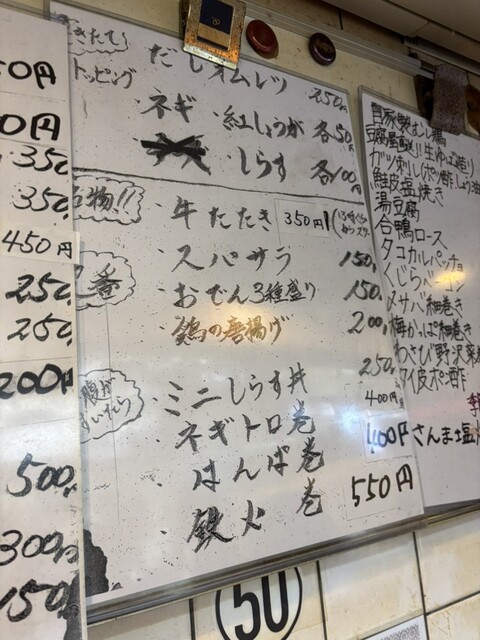 50円
0円
350
350
450円
250
250
200円
500
300円
150
トッピング
だしオムレツ 250
・ネギ ・紅しょうが 各50円
・しらす 各100円
名物!!
・牛たたき 350円
・スパサラ 150
・おでん3種盛り 150
・鶏の唐揚げ 200
・ミニしらす丼 250
・ネギトロ巻 400円
・はんぱ巻 400円
・鉄火巻 550円
自家製むし鶏
ガツ刺し ポン酢 しょう油
鮭皮塩焼き
湯豆腐
合鴨ロース
タコカルパッチョ
くじらベーコン
〆サバ細巻き
梅かっぱ細巻き
わさび野沢菜
皮ポン酢
さんま塩
50